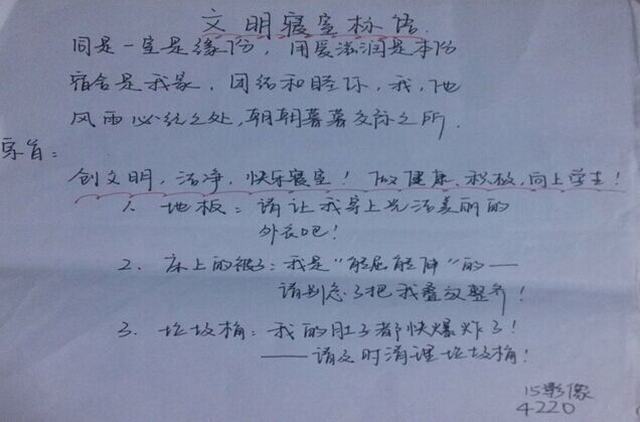 文明寝室标语
同是一室是缘份，用爱滋润是本份
宿舍是我家，团结和睦你，我，他
风雨必经之处，朝朝暮暮交际之所．
宗旨：
创文明，洁净，快乐寝室！做健康、积极，向上学生！
1、地板：请让我穿上光洁美丽的
外衣吧！
2．床上的被子：我是“能屈能伸”的——
请别忘了把我叠放整齐！
3．垃圾桶：我的肚子都快爆炸了！
——请及时清理垃圾桶！
15影像
4220